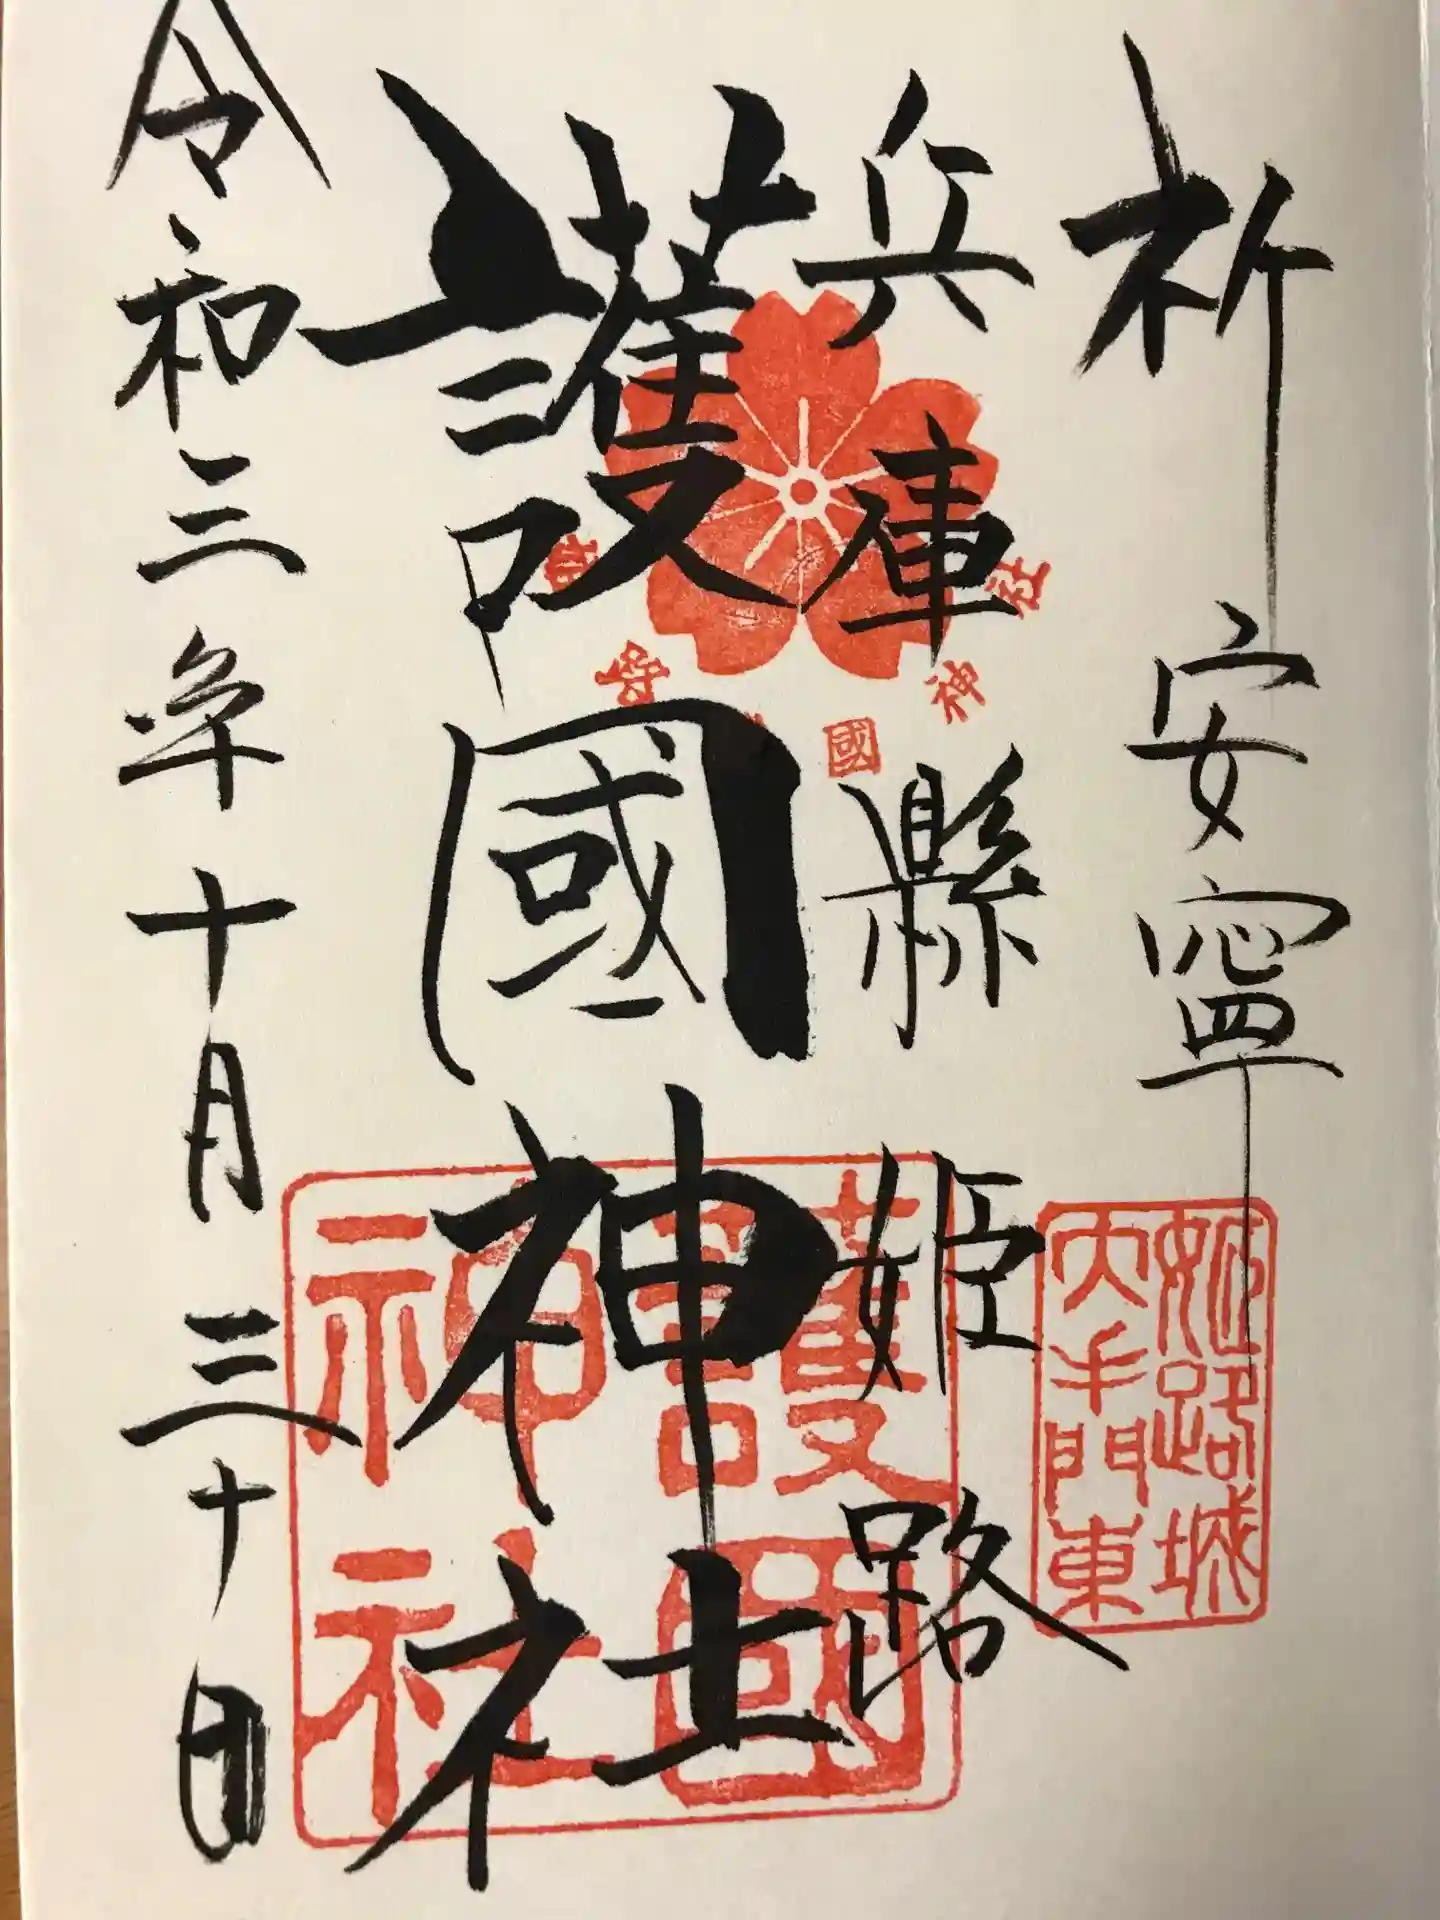 祈安寧
兵庫縣姫路
護國神社
令和三年十月三十日
國神社
姫路城
大手門東
護國
神社